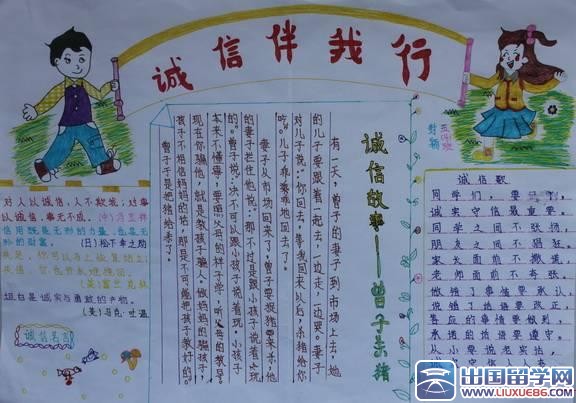 诚信伴我行
对人以诚信,人不欺我;对事
以诚信,事无不成。
信用既是无形的力量,也是无
形的财富。
(日)松下幸之助
坦白是诚实与勇敢的产物。
(美)马克·吐温
诚信名言
诚信故事——曾子杀猪
有一天,曾子的妻子到市场上去,她
的儿子要跟着一起去,一边走,一边哭。妻子
对儿子说:“你回去,等我回来以后,杀猪给你
吃。”儿子乖乖地回去了。
妻子从市场回来了,曾子要捉猪来杀,他
的妻子拦住他说:“那不过是跟小孩子说着玩
的。”曾子说:“决不可以跟小孩子说着玩。小孩子
本来不懂事,要照父母的样子学,听父母的教导。
现在你骗他,就是教孩子骗人。做妈妈的骗孩子,
孩子不相信妈妈的话,那是不可能把孩子教好的。”
曾子于是把猪给杀了。
诚信歌
同学们,要
诚实守信最重要。
同学之间不撒谎,
朋友之间不
家长面前不
老师面前不夸张。
做错了事情要承认,
说错了话语要改正。
答应的事情要做到,
承诺的话语要遵守。
从小要说老实话,
出国留学网
WWW.LIUXUE86.COM